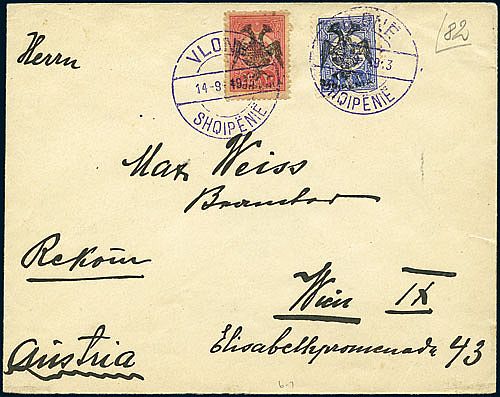 Herrn
82
VLONË
14-9-1913
SHQIPËNIË
VLONË
1913
SHQIPËNIË
Max Weiss
Beamter
Rekom
Wien IX
Austria
Elisabethpromenade 43
6-7